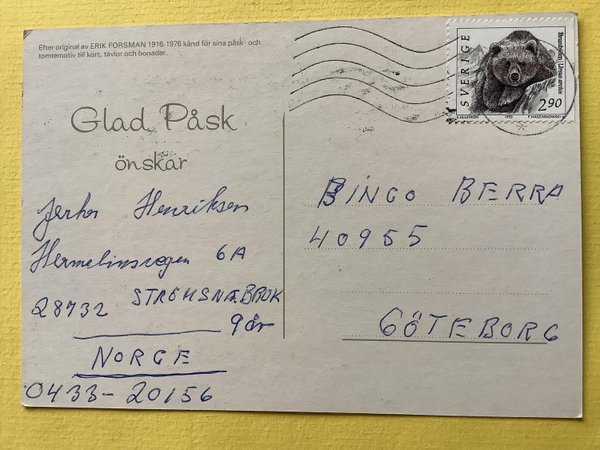 Efter original av ERIK FORSMAN 1916-1976 känd för sina påsk- och
tomtemotiv till kort, tavlor och bonader.
Glad Påsk
önskar
Henriksen
Hermelinsvegen 6A
28732 STRØMSNÆBRUK
9 år
NORGE
0433-20156
SVERIGE
2.90
BINGO BERRA
40955
GÖTEBORG